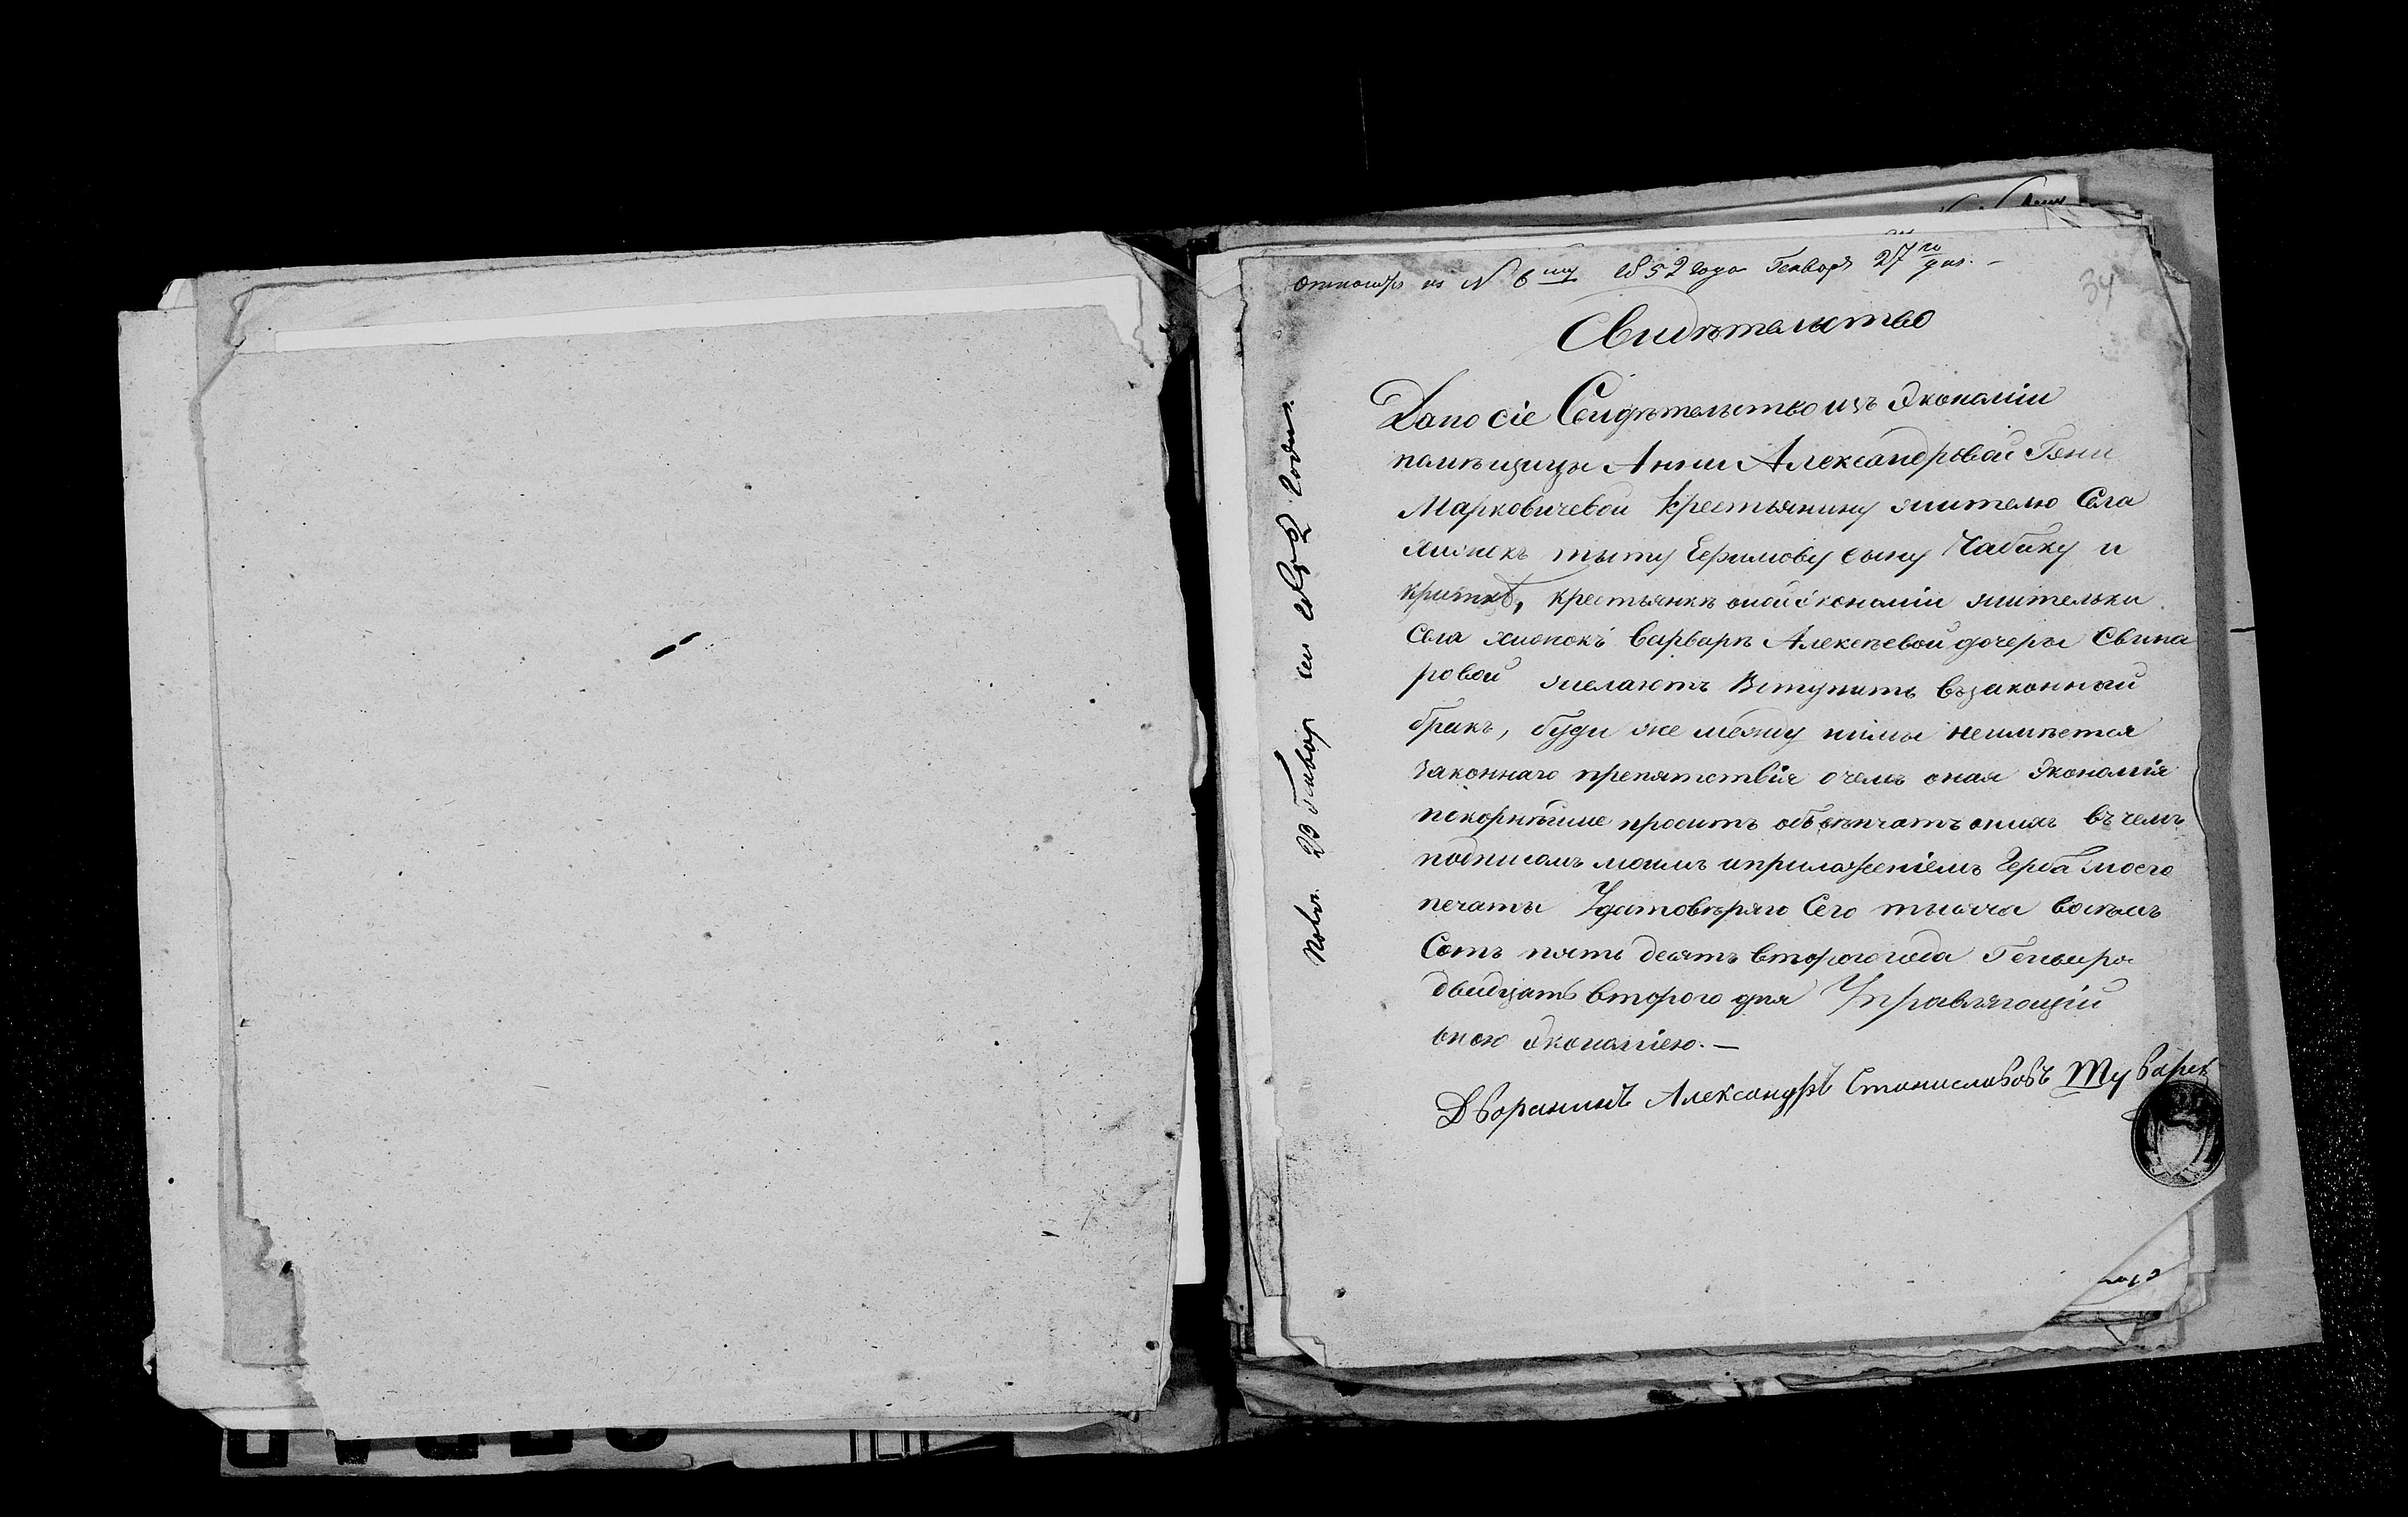 къ N 6му 1852 года Генваря 27го дня. –
34
Свидѣтельство
Дано сіе Свидѣтельство изъ Экономіи
помѣщицы Анны Александровой
Марковичевой Крестьянину жителю Села
Ефимову сыну Чабаку и
крестьянкѣ оной экономіи жительки
Села Варварѣ Алексѣевой дочеры Свина
ровой желаютъ Вступить въ законный
бракъ, буди же между нимы неимѣется
законнаго препятствія о чемъ оная Экономія
покорнѣйше проситъ обвѣнчать оныхъ въ чемъ
подписомъ моимъ и приложеніемъ Герба моего
печаты Удатовѣряю Сего тысяча восѣмъ
Сотъ пять десятъ второго года Генваря
двадцать второго дня Управляющій
оною Экономіею. –
Дворанинъ Александръ Станиславовъ
Генвар 1852 года